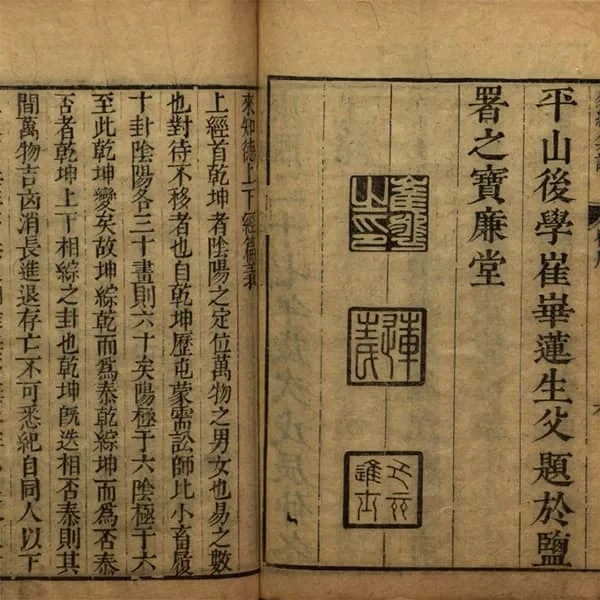 平山後學崔華蓮生父題於鹽
署之寶廉堂
崔華之印
蓮生
己亥進士
來知德上下經篇義
上經首乾坤者陰陽之定位萬物之男女也易之數
也對待不移者也自乾坤歷屯蒙需訟師比小畜履
十卦陰陽各三十畫則六十矣陽極于六陰極于六
至此乾坤變矣故坤綜乾而為泰乾綜坤而為否泰
否者乾坤上下相綜之卦也乾坤旣迭相否泰則其
間萬物吉凶消長進退存亡不可悉紀自同人以下